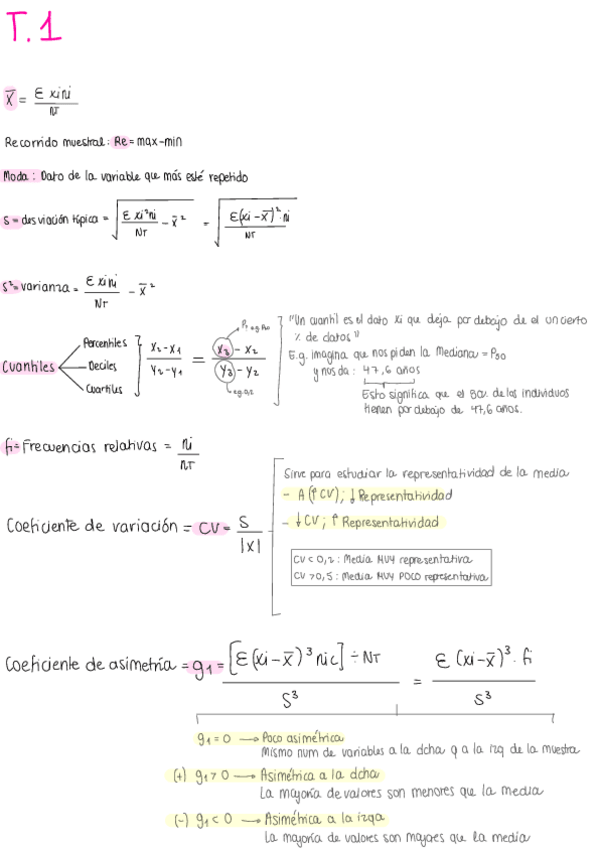 T.1
x̄ = Σ xini / NT
Recorrido muestral: Re = max-min
Moda: Dato de la variable que más esté repetido
S = desviación típica = √(Σ xi²ni / NT - x̄²) = √(Σ(xi - x̄)²·ni / NT)
S² = varianza = Σ xini / NT - x̄²
Cuantiles
Percentiles
Deciles
Cuartiles
x₂-x₁ / y₂-y₁ = x₃-x₂ / y₃-y₂
"Un cuantil es el dato xi que deja por debajo de el un cierto
% de datos"
E.g. imagina que nos piden la Mediana = P₅₀
y nos da: 47,6 años
Esto significa que el de los individuos
tienen por debajo de 47,6 anos.
fi = Frecuencias relativas = ni / NT
Coeficiente de variación = CV = S / |x|
Sirve para estudiar la representatividad de la media
- A (↑ CV); ↓ Representatividad
- ↓ CV; ↑ Representatividad
CV < 0,2: Media MUY representativa
CV > 0,5: Media MUY POCO representativa
Coeficiente de asimetría = g₁ = [Σ(xi - x̄)³ nic] ÷ NT / S³ = Σ (xi - x̄)³ · fi / S³
g₁ = 0 → Poco asimétrica
Mismo num de variables a la dcha q a la izq de la muestra
(+) g₁ > 0 → Asimétrica a la dcha
La mayoría de valores son menores que la media
(-) g₁ < 0 → Asimétrica a la izqa
La mayoría de valores son mayores que la media